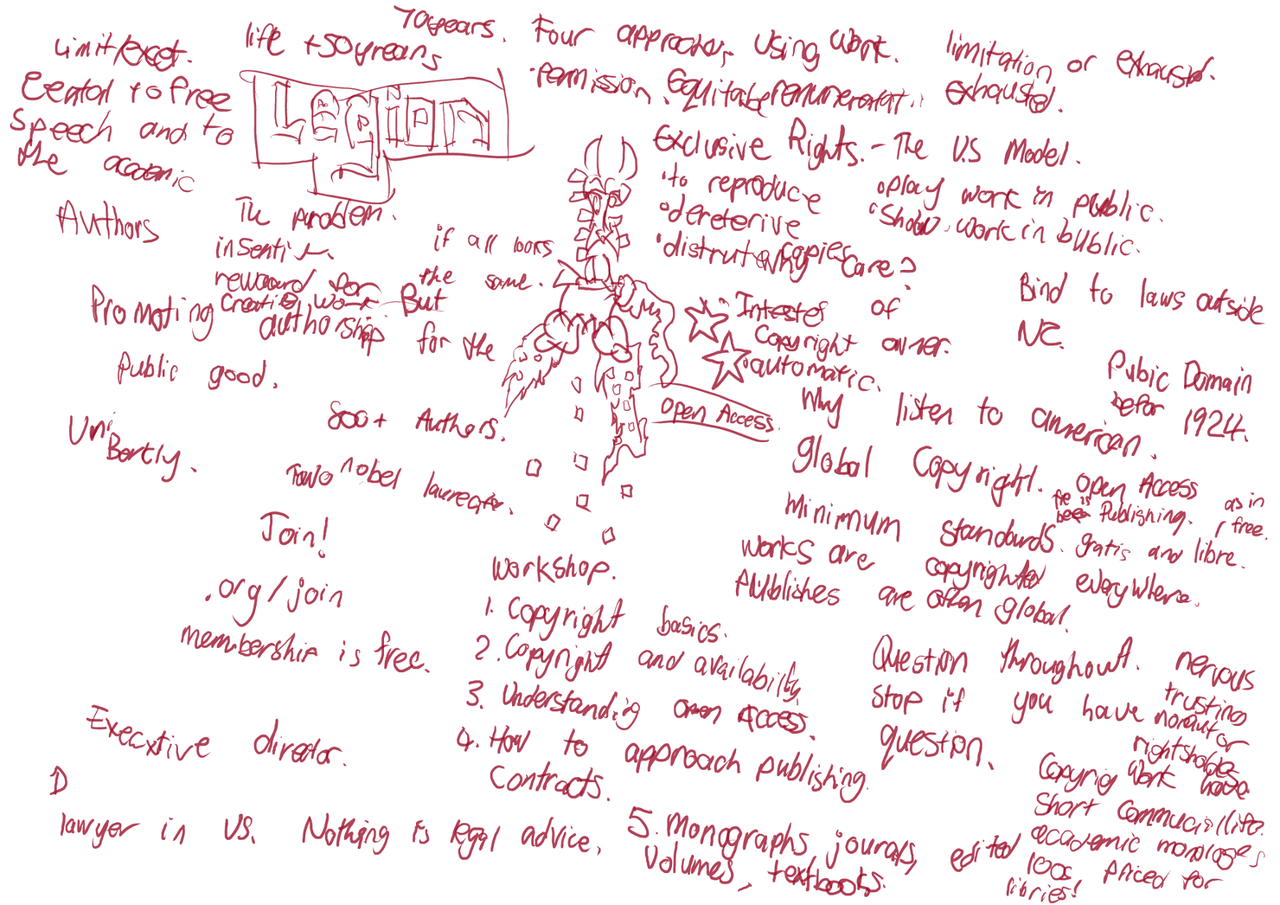 70years.
life +50 yrears
limit/except.
Four approaches Using Work.
limitation or exhausted.
permission. Equitable remunerat. exhausted.
Cental to free
Speech and to
the academic
Legion
Exclusive Rights. - The U.S Model.
• to reproduce
• dereterive
• distrute copies
• play work in public.
• Show work in public.
Why care?
Authors
The problem.
insentive
reward for
Creative work. But
if all looks
the same.
Promoting authorship for the
Public good.
Intestes of
Copyright owner.
• automatic.
Bind to laws outside
NZ.
Pubic Domain
befor 1924.
Open Access
Why listen to american.
800+ Authors.
Uni
Bertly.
Two nobel laureate.
Global Copyright.
Minimum standards.
works are copyrighted everywhere.
Publishes are often global.
Open Access
Publishing.
as in
free.
gratis and libre.
Join!
.org/join
membership is free.
Workshop.
1. Copyright basics.
2. Copyright and availability
3. Understanding open Access.
4. How to approach publishing
Contracts.
5. Monographs journals, edited
Volumes, textbooks.
Question throughout.
Stop if you have
question.
nervous
trusting
nonautor
rightsholder
Copyrig Work have
Short Commucial life.
academic monologes
100s priced for
libries!
Execxtive director.
D
lawyer in US. Nothing is legal advice.